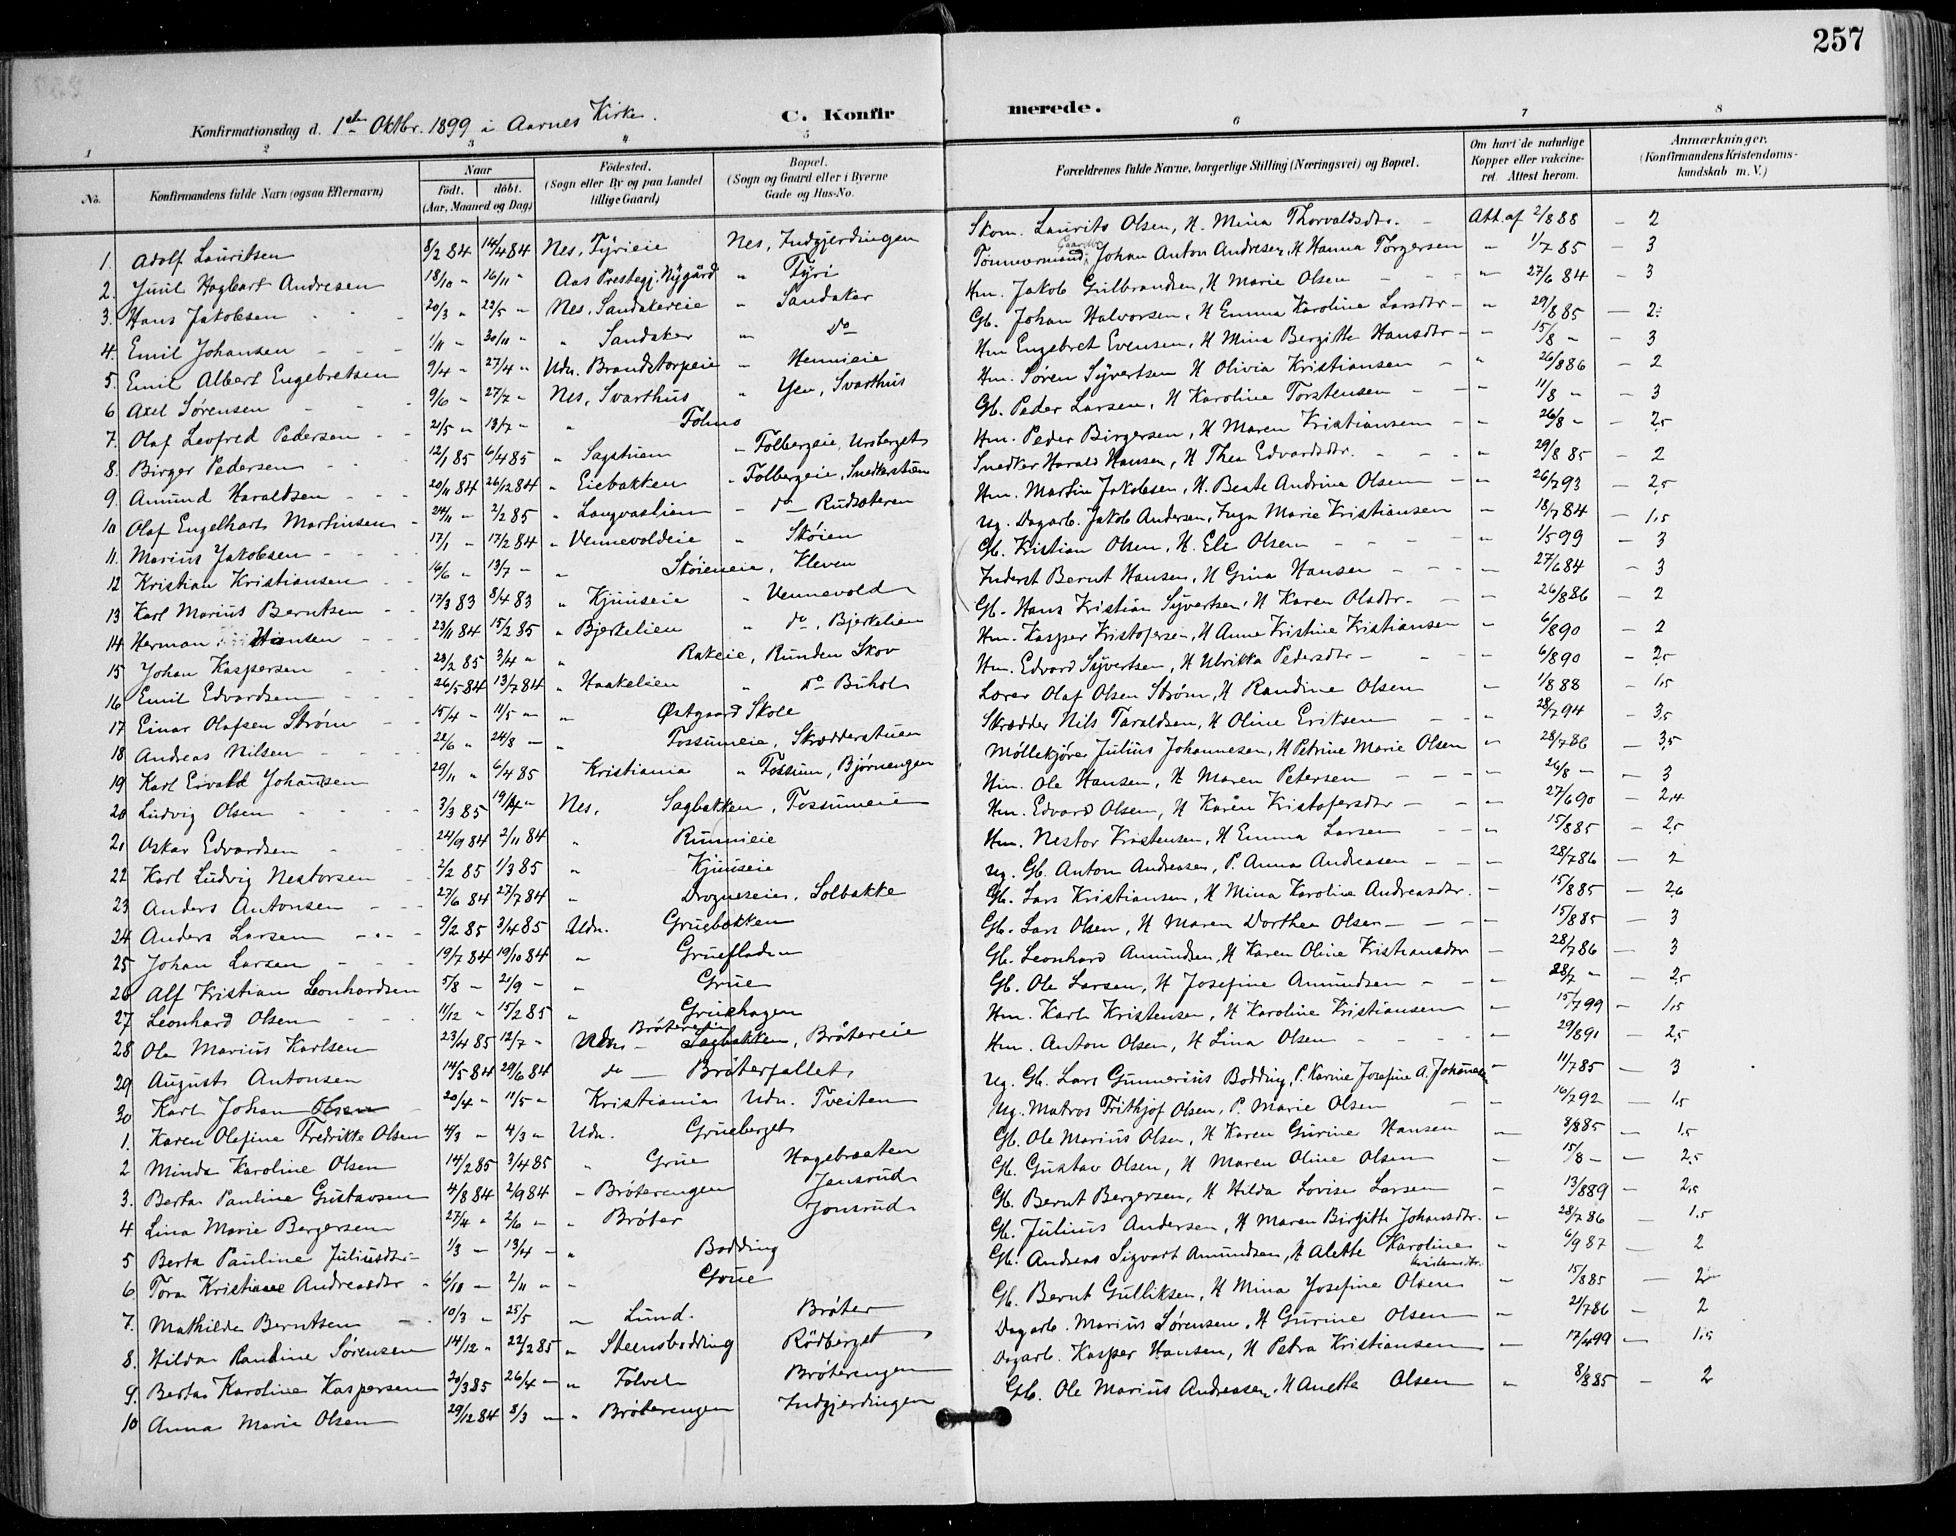 257
Konfirmationsdag d. 1ste Oktbr. 1899 i Aarnes Kirke.
C. Konfirmerede.
1 2 3 4 5 6 7 8
No. Konfirmandens fulde Navn (ogsaa Efternavn) Naar født. døbt. (Aar, Maaned og Dag) Fødested. (Sogn eller By og paa Landet tillige Gaard) Bopæl. (Sogn og Gaard eller i Byerne Gade og Hus-No. Forældrenes fulde Navne, borgerlige Stilling (Næringsvei) og Bopæl. Om havt de naturlige Kopper eller vakcineret. Attest herom. Anmærkninger. (Konfirmandens Kristendomskundskab m. V.)
1. Adolf Lauritsen 8/2 84 14/4 84 Nes, Fyrieie Nes, Indgjerdingen Skom. Laurits Olsen, H. Mina Thorvaldsdtr. - Att. af 2/8 88 - 2
2. Juul Hagbart Andresen 18/10 " 16/11 " Aas Prestegj. Nygård " Fyri Tømmermand, Gaardbr. Johan Anton Andresen, H Hanna Torgersen " 1/7 85 - 3
3. Hans Jakobsen 20/3 " 22/5 " Nes, Sandakereie " Sandaker Hm. Jakob Gulbrandsen, H Marie Olsen " 27/6 84 - 3
4. Emil Johansen 1/11 " 30/11 " " Sandaker " do Gb. Johan Halvorsen, H Emma Karoline Larsdtr - " 29/8 85 - 2
5. Emil Albert Engebretsen 9/4 " 27/4 " Udn. Brandstorpeie " Hennieie Hm Engebret Evensen, H Mina Bergitte Hansdtr - " 15/8 " - 3
6 Axel Sørensen 9/6 " 27/7 - Nes, Svarthus " Yen, Svarthus Hm. Søren Syvertsen H Olivia Kristiansen - " 26/8 86 - 2
7. Olaf Leofred Pedersen 21/5 " 13/7 - " Folmo Gb. Peder Larsen, H Karoline Torstensen - " 11/8 " - 3
8. Birger Pedersen 12/1 85 6/4 85 " Sagstuen " Folbergeie, Ursberget Hm. Peder Birgersen, H Maren Kristiansen " 26/8 - - 2,5
9. Amund Haraldsen 20/11 84 26/12 84 " Eiebakken " Folbergeie, Snekkerstuen Snedker Harald Hansen, H Thea Edvardsdtr. - " 29/8 85 - 2
10 Olaf Engelhart Martinsen 24/11 - 2/2 85 " Langvaslien - do Rudskeren Hm. Martin Jakobsen, H. Beate Andrina Olsen - " 26/7 93 - 2,5
11. Marius Jakobsen 17/1 - 17/2 84 " Vennevoldeie " Skøien Ug. Dagarb. Jakob Andersen, Inga Marie Kristiansen " 18/7 84 - 1,5
12 Kristian Kristiansen 16/6 " 13/7 - " Skøieneie, Kleven Gb. Kristian Olsen, H. Eli Olsen - " 1/5 99 - 3
13 Karl Marius Berntsen 17/3 83 8/4 83 " Kjuuseie " Vennevold Inderst Bernt Hansen, H Gina Hansen " 27/6 84 - 3
14 Herman Hansen 23/11 84 15/2 85 " Bjerkelien " do, Bjerkelien Gb. Hans Kristian Syvertsen, H Karen Olsdtr. - " 26/8 86 - 2
15 Johan Kaspersen 23/2 85 3/4 " " Rakeie, Runden Skov Hm. Kasper Kristofersen, H Anne Kristine Kristiansen " 6/8 90 - 2
16 Emil Edvardsen 26/5 84 13/7 84 " Haakelien " do Buhol Hm. Edvard Syvertsen, H Ulrikka Pedersdtr - " 6/8 90 - 2,5
17 Einar Olafsen Strøm 15/4 " 11/5 " " Østgaard Skole Lærer Olaf Olsen Strøm, H Randine Olsen " 1/8 88 - 1,5
18 Andreas Nilsen 22/6 " 24/8 - " Fossumeie, Skrædderstuen Skrædder Nils Taraldsen, H Oline Eriksen " 28/7 94 - 3,5
19 Karl Ervald Johansen 29/11 " 6/4 85 Kristiania " Fossum, Bjørnengen Møllekjører Julius Johannesen, H Petrine Marie Olsen " 28/7 86 - 3,5
20 Ludvig Olsen 3/3 85 19/4 " Nes, Sagbakken, Fossumeie Hm. Ole Hansen, H Maren Petersen " 26/8 - - 3
21 Oskar Edvardsen 24/9 84 2/11 84 " Runnieie Hm. Edvard Olsen, H Karen Kristofersdtr - " 27/6 90 - 2,4
22 Karl Ludvig Nestorsen 2/2 85 1/3 85 " Kjuuseie Hm. Nestor Kristensen, H Emma Larsen " 15/8 85 - 2,5
23 Anders Antonsen 27/6 84 27/7 84 " Drogneseie, Solbakke Ug. Gb. Anton Andreasen, P. Anna Andreasen - " 28/7 86 - 2
24 Anders Larsen 9/2 85 3/4 85 Udn. Gruebakken Gb. Lars Kristiansen, H Mina Karoline Andreasdtr. - 15/8 85 - 2,6
25 Johan Larsen 19/7 84 19/10 84 " Gruefladen Gb. Lars Olsen, H Maren Dorthea Olsen - " 15/8 85 - 3
26 Alf Kristian Leonhardsen 5/8 - 21/9 - " Grue Gb. Leonhard Amundsen, H Karen Oline Kristiansdtr - 28/7 86 - 3
27 Leonhard Olsen 11/12 " 15/2 85 " Gruehagen Gb. Ole Larsen, H Josefine Amundsen - 28/7 " - 2,5
28 Ole Marius Karlsen 23/4 85 12/7 " Udn. Brøtereie Sagbakken, Bråtereie Hm. Karl Kristensen, H Karoline Kristiansen - 15/7 99 - 1,5
29 August Antonsen 14/5 84 29/6 84 do - Brøterfallet Hm. Anton Olsen, H Lina Olsen - 29/8 91 - 2,5
30 Karl Johan Olsen 20/4 " 11/5 " Kristiania Udn. Tveiten Ug. Gb. Lars Gunnerius Bodding, P. Karine Josefine A. Johannesen " 11/7 85 - 3
1. Karen Olefine Fredrikke Olsen 4/3 - 4/3 - Udn. Grueberget Ug. Matros Frithjof Olsen, P. Marie Olsen - 16/7 92 - 1,5
2 Minda Karoline Olsen 14/2 85 3/4 85 " Grue Hagebraaten Gb. Ole Marius Olsen, H Karen Gurine Hansen - 8/8 85 - 1,5
3. Berta Pauline Gustavsen 4/8 84 2/9 84 " Brøterengen Jonsrud Gb. Gustav Olsen, H Maren Oline Olsen - 15/8 - - 2,5
4 Lina Marie Bergersen 27/4 " 2/6 - " Brøter Jonsrud Gb. Bernt Bergersen, H Hilda Lovise Larsen " 13/8 89 - 2,5
5 Berta Pauline Juliusdtr. 1/3 - 13/4 - " Bodding Gb. Julius Andersen, H Maren Birgitte Johansdtr. - 28/7 86 - 1,5
6 Tora Kristiane Andreasdtr 6/10 - 2/11 " " Grue Gb. Andreas Sigvart Amundsen, H Alette Karoline Kristiansdtr. " 6/9 87 - 2
7. Mathilde Berntsen 10/3 " 25/5 " Lund. Brøter Gb. Bernt Gulliksen, H Mina Josefine Olsen " 15/8 85 - 2
8. Hilda Randine Sørensen 14/12 " 22/2 85 " Steensbodding Rødberget Dagarb. Marius Sørensen, H Gurine Olsen - 21/7 86 - 2
9. Berta Karoline Kaspersen 20/3 85 26/4 - " Folvel Brøterengen Dagarb. Kasper Hansen, H Petra Kristiansen - 17/4 99 - 1,5
10 Anna Marie Olsen 29/12 84 8/3 - " Brøterengen Indgjerdingen Gb. Ole Marius Andreassen, H Anette Olsen " 8/8 85 - 2